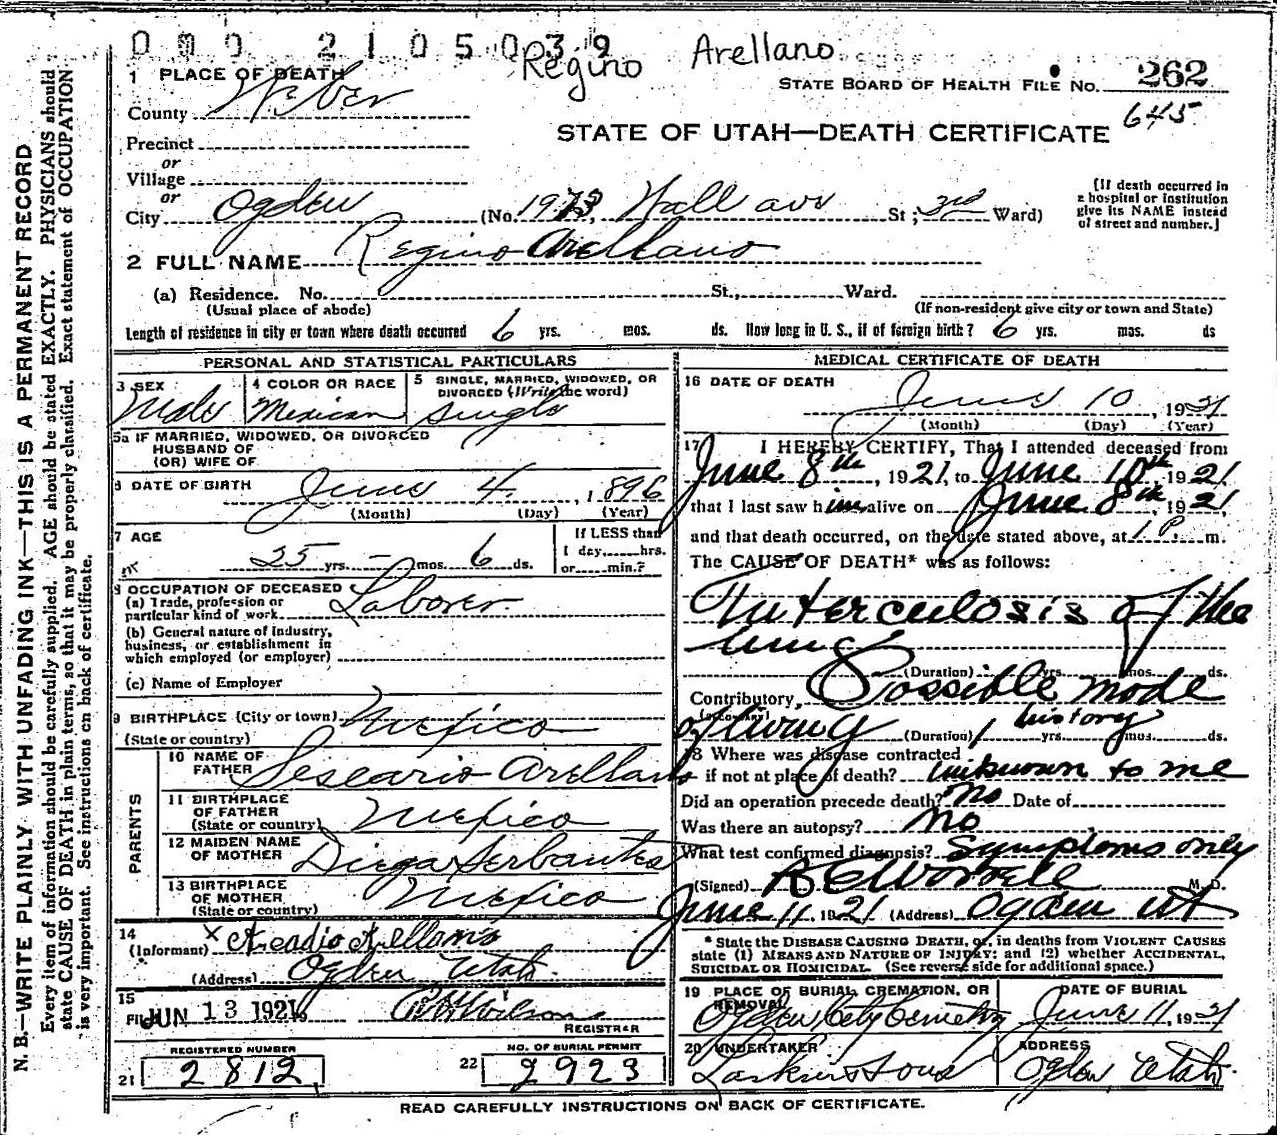 0 0 0 2 1 0 5 0 3 9
Regino Arellano
1 PLACE OF DEATH
STATE BOARD OF HEALTH FILE NO. 262
County Weber
645
STATE OF UTAH—DEATH CERTIFICATE
Precinct
or
Village
or
City Ogden (No. 1973, Wall ave St; 3rd Ward)
[If death occurred in
a hospital or institution
give its NAME instead
of street and number.]
2 FULL NAME Regino Arellano
(a) Residence. No. St., Ward.
(Usual place of abode) (If non-resident give city or town and State)
Length of residence in city or town where death occurred 6 yrs. mos. ds. How long in U. S., if of foreign birth? 6 yrs. mos. ds
PERSONAL AND STATISTICAL PARTICULARS
3 SEX Male
4 COLOR OR RACE Mexican
5 SINGLE, MARRIED, WIDOWED, OR
DIVORCED (Write the word)
single
5a IF MARRIED, WIDOWED, OR DIVORCED
HUSBAND OF
(OR) WIFE OF
6 DATE OF BIRTH June 4, 1896
(Month) (Day) (Year)
7 AGE
25 yrs. — mos. 6 ds.
If LESS than
1 day, hrs.
or min.?
8 OCCUPATION OF DECEASED
(a) Trade, profession or
particular kind of work Laborer
(b) General nature of industry,
business, or establishment in
which employed (or employer)
(c) Name of Employer
9 BIRTHPLACE (City or town) Mexico
(State or country)
PARENTS
10 NAME OF
FATHER Arellano
11 BIRTHPLACE
OF FATHER
(State or country) Mexico
12 MAIDEN NAME
OF MOTHER Diega Serbantes
13 BIRTHPLACE
OF MOTHER
(State or country) Mexico
14
(Informant) X Arcadio Arellano
(Address) Ogden Utah.
15
FILED JUN 13 1921 Wilson
REGISTRAR
21 REGISTERED NUMBER
2812
22 NO. OF BURIAL PERMIT
2923
MEDICAL CERTIFICATE OF DEATH
16 DATE OF DEATH
June 10, 1921
(Month) (Day) (Year)
17 I HEREBY CERTIFY, That I attended deceased from
June 8th, 1921, to June 10th 1921
that I last saw him alive on June 8th, 1921,
and that death occurred, on the date stated above, at 1 P. m.
The CAUSE OF DEATH* was as follows:
Tuberculosis of the
lung
(Duration) yrs. mos. ds.
Contributory Possible mode
of living history
(Duration) 1 yrs. mos. ds.
18 Where was disease contracted
if not at place of death? unknown to me
Did an operation precede death? No Date of
Was there an autopsy? No
What test confirmed diagnosis? Symptoms only
(Signed) Worrell M. D.
June 11 1921 (Address) Ogden Ut
* State the DISEASE CAUSING DEATH, or, in deaths from VIOLENT CAUSES
state (1) MEANS AND NATURE OF INJURY; and (2) whether ACCIDENTAL,
SUICIDAL OR HOMICIDAL. (See reverse side for additional space.)
19 PLACE OF BURIAL, CREMATION, OR
REMOVAL
Ogden City Cemetry
DATE OF BURIAL
June 11, 1921
20 UNDERTAKER
Larkin & Sons
ADDRESS
Ogden, Utah.
READ CAREFULLY INSTRUCTIONS ON BACK OF CERTIFICATE.
N. B.—WRITE PLAINLY WITH UNFADING INK—THIS IS A PERMANENT RECORD
Every item of information should be carefully supplied. AGE should be stated EXACTLY. PHYSICIANS should
state CAUSE OF DEATH in plain terms, so that it may be properly classified. Exact statement of OCCUPATION
is very important. See instructions on back of certificate.